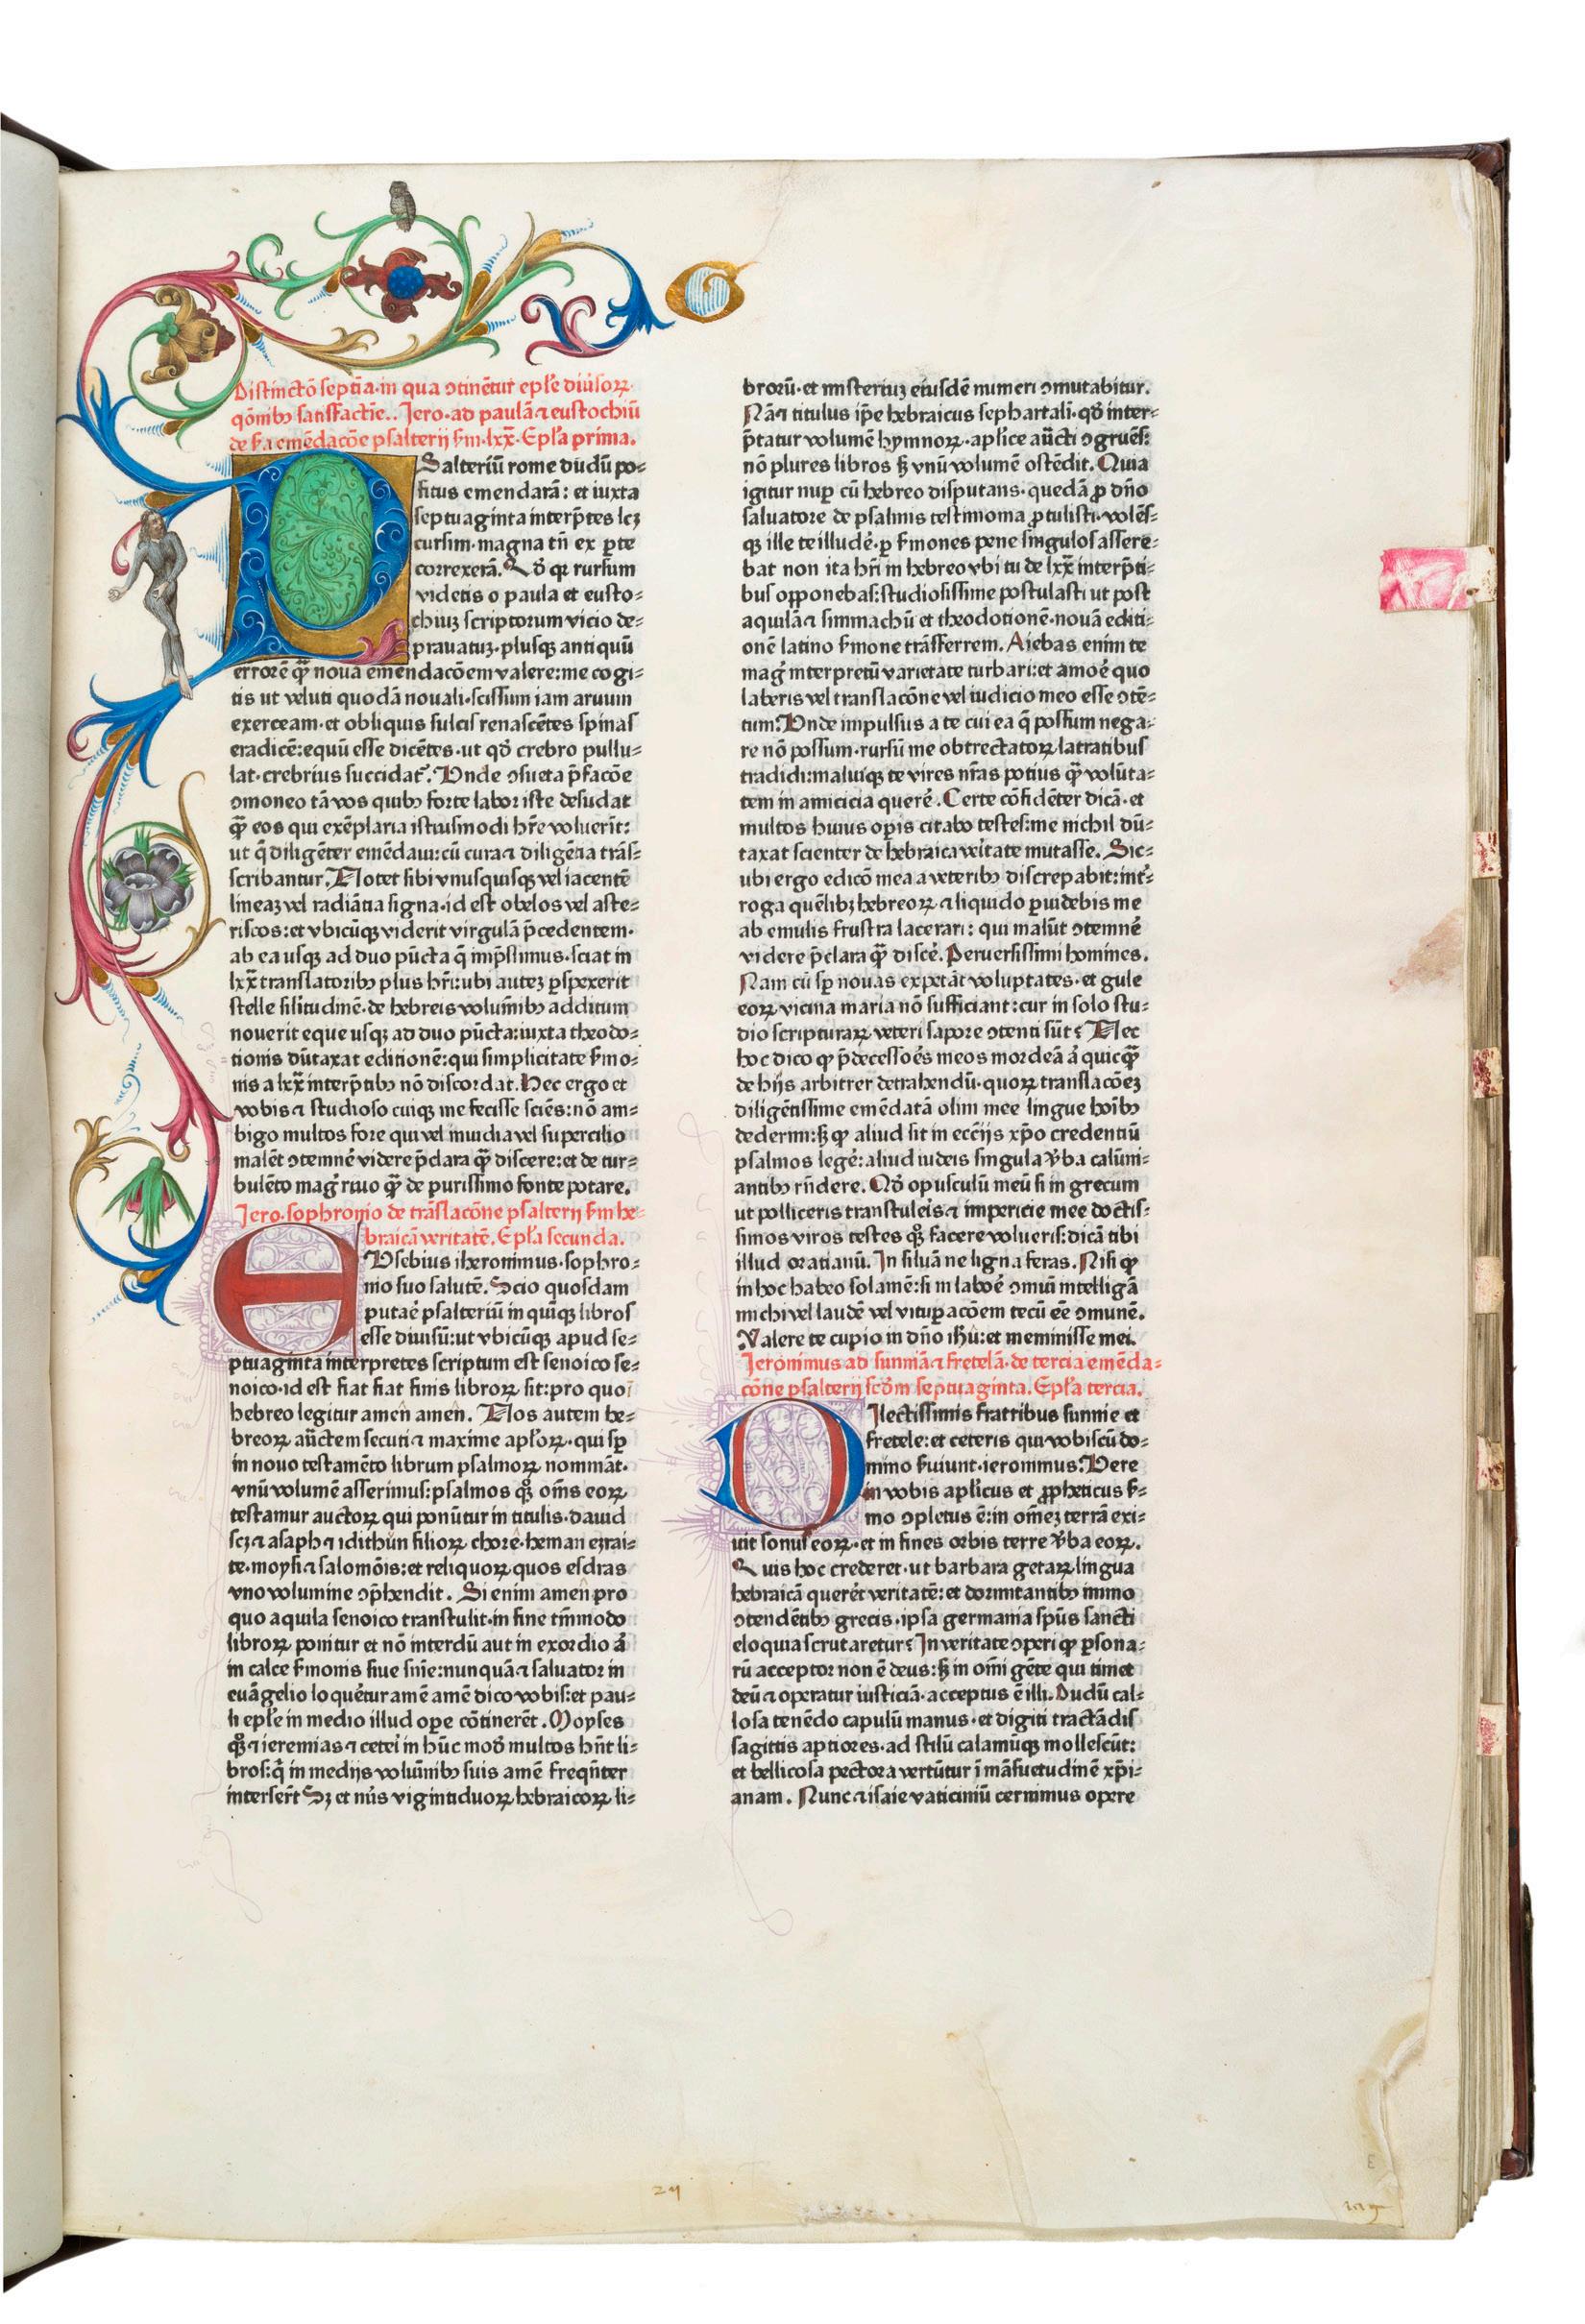 Distinctō septīa·in qua ↄtinētur epl̄e diūsoꝝ·
qōnibꝰ satisfactiē.. Jero·ad paulā ⁊ eustochiū
de s̄a emēdacōe psalterij s̄m·lxx̄·Epl̄a prima.
PSalteriū rome dudū po⸗
situs emendarā: et iuxta
septuaginta interp̄tes lcꝫ
cursim·magna tn̄ ex ꝑte
correxerā. Qd̄ qꝛ rursum
videtis o paula et eusto⸗
chiuꝫ scriptorum vicio de⸗
prauatuꝫ·plusqꝫ antiquū
errorē qꝫ̄ nouā emendacōem valere: me cogi⸗
tis ut veluti quodā nouali·scissum iam aruum
exerceam·et obliquis sulcis renascētes spinas
eradicē: equū esse dicētes·ut qd̄ crebro pullu⸗
lat·crebrius succidat᷑. Vnde ↄsueta p̄facōe
ↄmoneo tā vos quibꝰ forte labor iste desudat
qꝫ̄ eos qui exēplaria istiusmodi hr̄e voluerīt:
ut q̄ diligēter emēdaui: cū cura ⁊ diligētia trās⸗
scribantur. Notet sibi vnusquisqꝫ vel iacentē
lineaꝫ vel radiātia signa·id est obelos vel aste⸗
riscos: et vbicūqꝫ viderit virgulā p̄cedentem·
ab ea usqꝫ ad duo pūcta q̄ imp̄ssimus·sciat in
lxx̄ translatoribꝰ plus hr̄i: ubi auteꝫ ꝑspexerit
stelle sil̄itudinē·de hebreis volūinibꝰ additum
nouerit eque usqꝫ ad duo pūcta: iuxta theodo⸗
tionis dūtaxat editionē: qui simplicitate s̄mo⸗
nis a lxx̄ interp̄tibꝰ nō discordat. Hec ergo et
vobis ⁊ studioso cuiqꝫ me fecisse sciēs: nō am⸗
bigo multos fore qui vel inuidia vel supercilio
malēt ↄtemnē videre p̄clara qꝫ̄ discere: et de tur⸗
bulēto mag̓ riuo qꝫ̄ de purissimo fonte potare.
Jero·sophronio de trāslacōne psalterij s̄m he⸗
braicā veritatē. Epl̄a secunda.
EVsebius iheronimus·sophro⸗
nio suo salutē. Scio quosdam
putāe psalteriū in quīqꝫ libros
esse diuisū: ut vbicūqꝫ apud se⸗
ptuaginta interpretes scriptum est senoico se⸗
noico·id est fiat fiat finis libroꝝ sit: pro quo ī
hebreo legitur amen amen. Nos autem he⸗
breoꝝ aūctem secuti ⁊ maxime apl̄oꝝ·qui sꝑ
in nouo testamēto librum psalmoꝝ nomināt·
vnū volumē asserimus: psalmos qꝫ̄ om̄s eoꝝ
testamur auctoꝝ qui ponūtur in titulis·dauid
scꝫ ⁊ asaph ⁊ idithūn filioꝝ chore·heman eꝫrai⸗
te·moysi ⁊ salomōis: et reliquoꝝ quos esdras
vno volumine ↄp̄hendit. Si enim amen pro
quo aquila senoico transtulit·in fine tm̄modo
libroꝝ ponitur et nō interdū aut in exordio aꝉ
in calce s̄monis siue sn̄ie: nunquā ⁊ saluator in
euāgelio loquēetur amē amē dico vobis: et pau⸗
li epl̄e in medio illud ope cōtinerēt. Moyses
qꝫ̄ ⁊ ieremias ⁊ ceteī in hūc mod̄ multos hn̄t li⸗
bros: q̄ in medijs voluinibꝰ suis amē freqn̄ter
interserūt Sꝫ et nūs vigintiduoꝝ hebraicoꝝ li⸗
brorū·et misteriuꝫ eiusdē numeri ↄmutabitur.
Nā ⁊ titulus ip̄e hebraicus sephartali·qd̄ inter⸗
p̄tatur volumē hymnoꝝ·apl̄ice aūcti ↄgruēs:
nō plures libros sꝫ vnū volumē ostēdit. Quia
igitur nuꝑ cū hebreo disputans·quedā ꝓ dn̄o
saluatore de psalmis testimonia ꝓtulisti·volēs⸗
qꝫ ille te illudē·ꝑ s̄mones pene singulos assere⸗
bat non ita hr̄i in hebreo vbi tu de lxx̄ interp̄ti⸗
bus opponebas: studiosissime postulasti ut post
aquilā ⁊ simmachū et theodotionē·nouā editi⸗
onē latino s̄mone trāsferrem. Aiebas enim te
mag̓ interpretū varietate turbari: et amoē quo
laberis vel translacōne vel iudicio meo esse ↄtē⸗
tum: Vnde impulsus a te cui ea q̄ possum nega⸗
re nō possum·rursū me obtrectatoꝝ latratibus
tradidi: maluiqꝫ te vires nr̄as potius qꝫ̄ volūta⸗
tem in amicicia querē. Certe cōfidēter dicā·et
multos huius opis citabo testes: me nichil dū⸗
taxat scienter de hebraica vēitate mutasse. Sic⸗
ubi ergo edicō mea a veteribꝰ discrepabit: int̓⸗
roga quēlibꝫ hebreoꝝ ⁊ liquido ꝑuidebis me
ab emulis frustra lacerari: qui malūt ↄtemnē
videre p̄clara qꝫ̄ discē. Peruersissimi homines.
Nam cū sꝑ nouas expetāt voluptates·et gule
eoꝝ vicina maria nō sufficiant: cur in solo stu⸗
dio scripturaꝝ veteri sapore ↄtenti sūt? Nec
hoc dico qꝙ p̄decessoēs meos mordeā aꝉ quicqꝫ̄
de hijs arbitrer detrahendū·quoꝝ translacōeꝫ
diligētissime emēdatā olim mee lingue hoībꝰ
dederim: sꝫ ꝙ aliud sit in eccījs xp̄o credentiū
psalmos legē: aliud iudeis singula v̄ba calūni⸗
antibꝰ rn̄dere. Qd̄ opusculū meū si in grecum
ut polliceris transtuleis ⁊ impericie mee doctis⸗
simos viros testes qꝫ̄ facere volueris: dicā tibi
illud oratianū. In siluā ne ligna feras. Nisi ꝙ
in hoc habeo solamē: si in laboē ↄmūi intelligā
michi vel laudē vel vituꝑacōem tecū eē ↄmunē.
Valere te cupio in dn̄o ih̄u: et meminisse mei.
Jeronimus ad sunniā ⁊ fretelā·de tercia emēda⸗
cōne psalterij scd̄m septuaginta. Epl̄a tercia.
DJlectissimis fratribus sunnie et
fretele: et ceteris qui vobiscū do⸗
mino s̄uiunt·ieronimus: Vere
in vobis apl̄icus et ꝓpheticus s̄⸗
mo ↄpletus ē: in om̄eꝫ terrā exi⸗
uit sonus eoꝝ·et in fines orbis terre v̄ba eoꝝ.
Quis hoc crederet·ut barbara getaꝝ lingua
hebraicā querēt veritatē: et dormitantibꝰ immo
ↄtendētibꝰ grecis·ipsa germania sp̄us sancti
eloquia scrutaretur? In veritate ↄperi ꝙ ꝑsona⸗
rū acceptor non ē deus: sꝫ in om̄i gēte qui timet
deū ⁊ operatur iusticiā·acceptus ē illi. Dudū cal⸗
losa tenēdo capulū manus·et digiti tractādis
sagittis aptiores·ad stilū calamūqꝫ mollescūt:
et bellicosa pectora vertūtur ī māsuetudinē xp̄i⸗
anam. Nunc ⁊ isaie vaticiniū cernimus opere